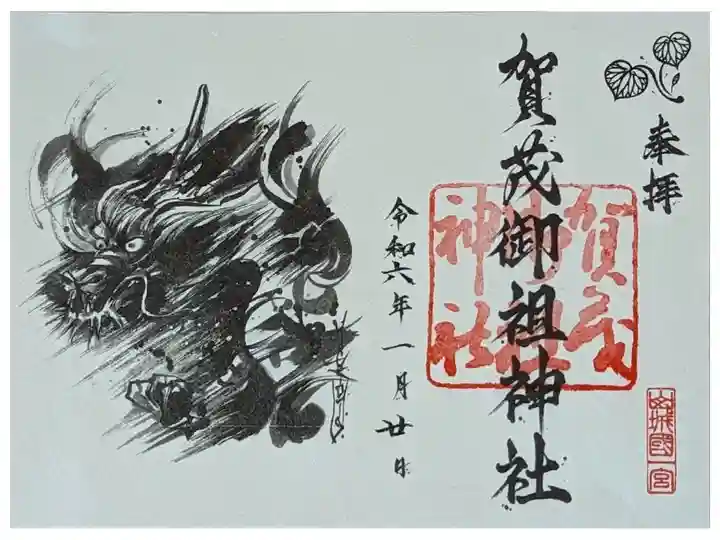 奉拝
山城國一宮
賀茂御祖神社
賀茂御祖神社
令和六年一月廿日